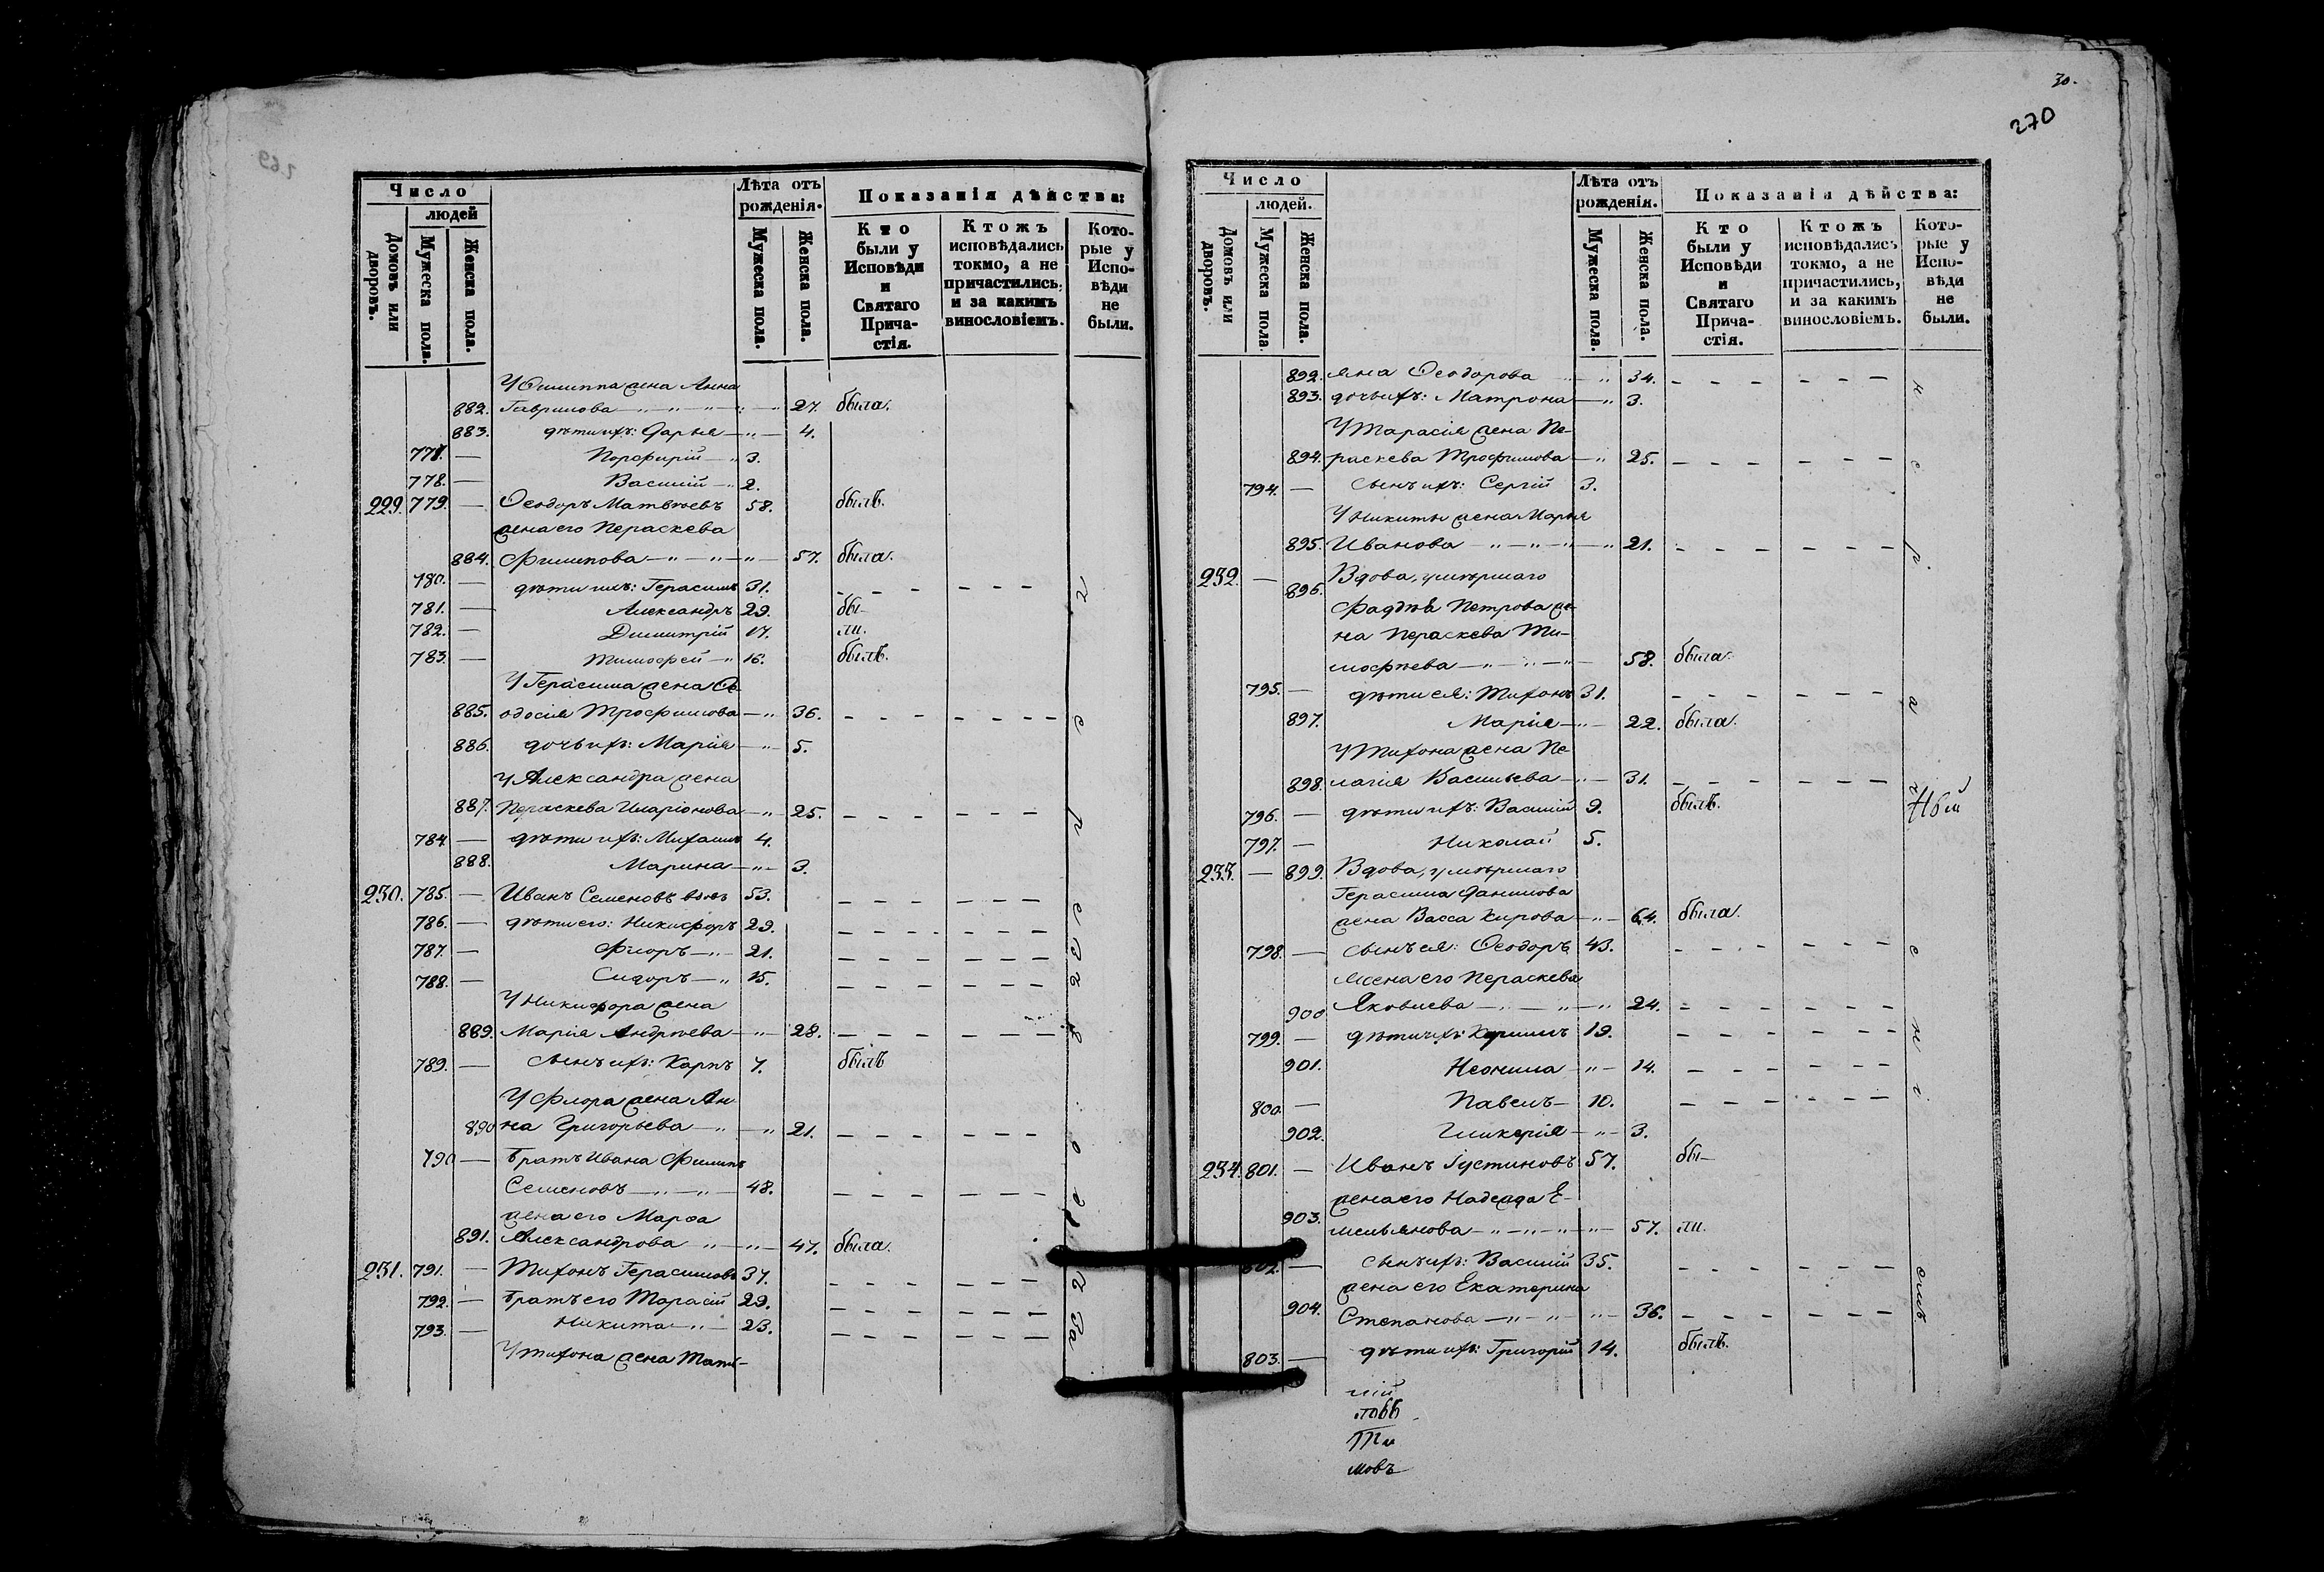 269
Число
людей
Домовъ или дворовъ.
Мужеска пола.
Женска пола.
Лѣта отъ рожденія.
Мужеска пола.
Женска пола.
Показанія дѣйства:
Кто были у Исповѣди и Святаго Прича-стія.
Ктожъ исповѣдались токмо, а не причастились, и за какимъ винословіемъ.
Кото-рые у Испо-вѣди не были.
У Филиппа жена Анна
882. Гаврилова — „ — 27. была.
883. дѣти ихъ: Дарья — „ — 4.
777. — Порфирій — „ 3.
778. — Василій — „ 2.
229. 779. — Ѳеодоръ Матвѣевъ 58. былъ.
жена его Параскева
884. Филипова — „ — „ — 57. была.
780. — дѣти ихъ: Герасимъ 31. — — — — — —
781. — Александръ 29. бы-
782. — Димитрій 17. ли.
783. — Тимофей — „ 16. былъ.
У Герасима жена Ѳе-
885. одосія Трофимова — „ 36. — — — — — — —
886. дочь ихъ: Марія — „ — 5.
У Александра жена
887. Пераскева Иларіонова — „ — 25. — — — — — — —
784. — дѣти ихъ: Михаилъ 4.
888. Марина — „ — 3.
230. 785. — Иванъ Семеновъ вдовъ 53. — — — — — —
786. — дѣти его: Никифоръ 29. — — — — — — —
787. — Флоръ — „ — 21. — — — — — —
788. — Сидоръ — „ 15. — — — — — —
У Никифора жена
889. Марія Андрѣева — „ — 28. — — — — — —
789. — сынъ ихъ: Карпъ 7. былъ
У Флора жена Ан-
890 на Григорьева — „ — „ 21. — — — — — —
790 — Братъ Ивана Филипъ
Семеновъ — „ — „ — 48. — — — — — — —
жена его Марѳа
891. Александрова „ — „ — 47. была.
231. 791. — Тихонъ Герасимовъ 37. — — — — — —
792. — Братъ его Тарасій 29. — — — — — — —
793. — Никита — „ — 23. — — — — — — —
У Тихона жена Тать-
30.
270
Число
людей.
Домовъ или дворовъ.
Мужеска пола.
Женска пола.
Лѣта отъ рожденія.
Мужеска пола.
Женска пола.
Показанія дѣйства:
Кто были у Исповѣди и Святаго Прича-стія.
Ктожъ исповѣдались токмо, а не причастились, и за какимъ винословіемъ.
Кото-рые у Испо-вѣди не были.
892. яна Ѳеодорова — „ 34. — — — — — —
893. дочь ихъ: Матрона — „ 3.
У Тарасія жена Пе-
894. раскева Трофимова — „ 25. — — — — — —
794. — сынъ ихъ: Сергій 3.
У Никиты жена Марья
895. Иванова — „ — „ — „ 21. — — — — — —
232. — 896. Вдова, умершаго
Фаддѣя Петрова же-
на Пераскева Ти-
мофѣева — „ — „ — 58. была.
795. — дѣти ея: Тихонъ 31. — — — — — —
897. Марія — „ — 22. была.
У Тихона жена Пе-
898. лагія Васильева — „ — 31. — — — — — —
796. — дѣти ихъ: Василій 9. былъ.
797. — Николай 5.
233. — 899. Вдова, умершаго
Герасима Данилова
жена Васса Кирова — „ — 64. была.
798. — сынъ ея: Ѳеодоръ 43. — — — — — —
жена его Пераскева
900 Яковлева — „ — „ — „ 24. — — — — — —
799. — дѣти ихъ: Кириллъ 19. — — — — — —
901. Неонила — „ — 14. — — — — — —
800 — Павелъ — 10. — — — — — —
902. Гликерія — „ — 3.
234. 801. — Иванъ Густиновъ 57. бы-
жена его Надежда Е-
903. мельянова — „ — „ — „ — 57. ли.
802. — сынъ ихъ: Василій 35. — — — — — —
жена его Екатерина
904. Степанова — „ — „ — „ — 36. — — — — — —
803. — дѣти ихъ: Григорій 14. былъ.